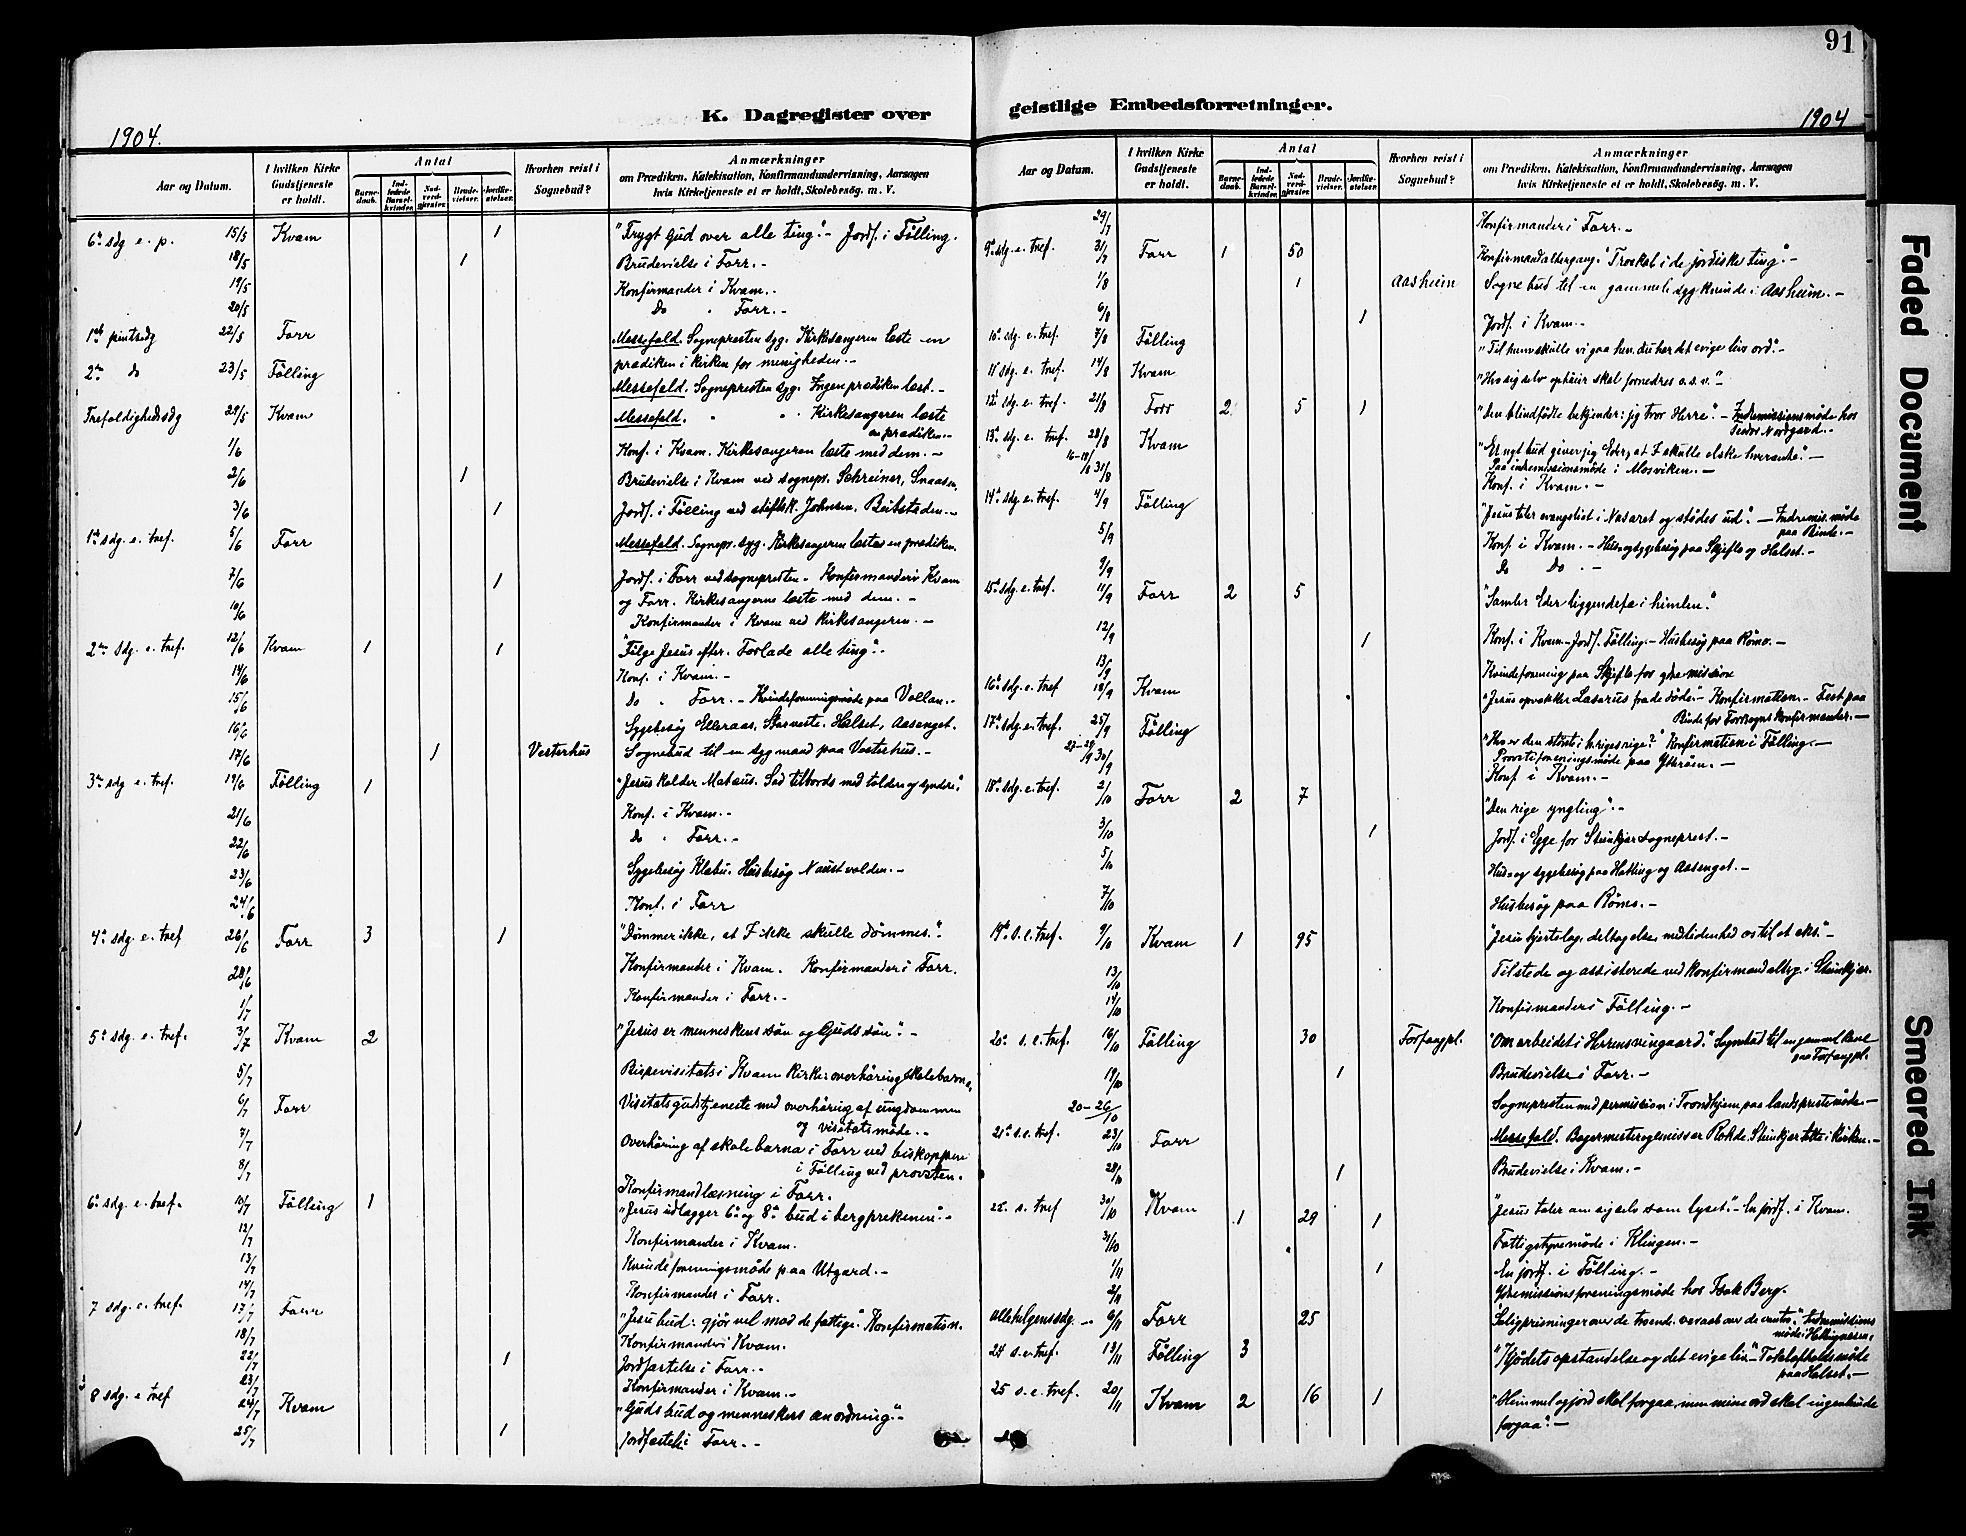 91
K. Dagregister over geistlige Embedsforretninger.
1904.
1904
Aar og Datum.
I hvilken Kirke Gudstjeneste er holdt.
Antal
Barnedaab.
Indledede Barselkvinder.
Nadverdgjester.
Brudevielser.
Jordfæstelser.
Hvorhen reist i Sognebud?
Anmærkninger
om Prædiken, Katekisation, Konfirmandundervisning, Aarsagen hvis Kirketjeneste ei er holdt, Skolebesøg. m. V.
6. sdg e. p. 15/5 Kvam 1 "Frygt Gud over alle ting". - Jordf. i Følling.
18/5 1 Brudevielse i Forr. -
19/5 Konfirmander i Kvam. -
20/5 Do " Forr. -
1ste pintsedg 22/5 Forr Messefald. Sognepresten syg. Kirkesangeren læste en
prædiken i kirken for menigheden. -
2den do 23/5 Følling Messefald. Sognepresten syg. Ingen prædiken læst. -
Trefoldighedssdg 29/5 Kvam Messefald. " " Kirkesangeren læste
en prædiken. -
1/6 Konf. i Kvam. Kirkesangeren læste med dem. -
2/6 1 Brudevielse i Kvam ved sognepr. Schreiner, Snaasen.
3/6 1 Jordf. i Følling ved stiftsk. Johnsen, Beitstaden. -
1. sdg. e. tref. 5/6 Forr Messefald. Sognepr. syg. Kirkesangeren læste en prædiken.
7/6 1 Jordf. i Forr ved sognepresten - Konfirmander i Kvam
og Forr. Kirkesangerne læste med dem. -
10/6 Konfirmander i Kvam ved kirkesangeren. -
2den sdg. e. tref. 12/6 Kvam 1 1 "Følge Jesus efter. Forlade alle ting". -
14/6 Konf. i Kvam. -
15/6 do " Forr. - Kvindeforeningsmøde paa Vollan. -
16/6 Sygebesøg Elleraas, Halset, Aasenget.
17/6 1 Vesterhus Sognebud til en syg mand paa Vesterhus. -
3die sdg e. tref. 19/6 Følling 1 "Jesus kalder Matæus. Sad tilbords med toldere og syndere".
21/6 Konf. i Kvam. -
22/6 do " Forr. -
23/6 Sygebesøg Klæbu. Husbesøg Naustvolden. -
24/6 Konf. i Forr
4. sdg. e. tref 26/6 Forr 3 1 "Dømmer ikke, at I ikke skulle dømmes." -
28/6 Konfirmander i Kvam. Konfirmander i Forr.
1/7 Konfirmander i Forr. -
5. sdg. e. tref. 3/7 Kvam 2 "Jesus er menneskens søn og Guds søn". -
5/7 Bispevisitats i Kvam Kirke: overhøring skolebarna,
6/7 Forr Visitatsgudstjeneste med overhøring af ungdommen
og visitatsmøde. -
7/7 Overhøring af skolebarna i Forr ved biskoppen
8/7 i Følling ved provsten.
Konfirmandlæsning i Forr.
6. sdg. e. tref. 10/7 Følling 1 "Jesus udlægger 6. og 8. bud i bergprekenen". -
12/7 Konfirmander i Kvam.
13/7 Kvindeforeningsmøde paa Utgard. -
14/7 Konfirmander i Forr.
7 sdg. e. tref. 17/7 Forr "Jesu bud: gjør vel mod de fattige". Konfirmation.
18/7 Konfirmander i Kvam.
22/7 1 Jordfæstelse i Forr. -
23/7 Konfirmander i Kvam. -
8 sdg. e tref 24/7 Kvam "Guds bud og menneskers anordning". -
25/7 1 Jordfæstelse i Forr. -
Aar og Datum.
I hvilken Kirke Gudstjeneste er holdt.
Antal
Barnedaab.
Indledede Barselkvinder.
Nadverdgjester.
Brudevielser.
Jordfæstelser.
Hvorhen reist i Sognebud?
Anmærkninger
om Prædiken, Katekisation, Konfirmandundervisning, Aarsagen hvis Kirketjeneste ei er holdt, Skolebesøg. m. V.
29/7 Konfirmander i Forr. -
9. sdg. e. tref. 31/7 Forr 1 50 Konfirmandaltergang. "Troskab i de jordiske ting". -
1/8 1 Aasheim Sognebud til en gammel syg kvinde i Aasheim. -
6/8 1 Jordf. i Kvam. -
10. sdg. e. tref. 7/8 Følling "Til hvem skulle vi gaa hen. du har det evige livs ord". -
11 sdg. e. tref. 14/8 Kvam "Hvo sig selv ophøier skal fornedres o. s. v." -
12. sdg. e. tref. 21/8 Forr 2 5 1 "Den blindfødte bekjender: jeg tror Herre". - Indremissionsmøde hos
Nordgard. -
13. sdg. e. tref. 28/8 Kvam "Et nyt bud giver jeg Eder, at I skulle elske hverandre". -
16-18/8 Paa indremissionsmøde i Mosviken. -
31/8 Konf. i Kvam. -
14. sdg. e. tref. 4/9 Følling "Jesus taler evangeliet i Nasaret og stødes ud". - Indremis. møde
paa Binde. -
5/9 Konf. i Kvam. - Hus og sygebesøg paa Skjefte og Halset. -
9/9 Do Do. -
15. sdg. e. tref. 11/9 Forr 2 5 "Samler Eder liggendefæ i himlen".
12/9 1 Konf. i Kvam - Jordf. Følling. - Husbesøg paa Rømo. -
13/9 Kvindeforening paa Skjefte for ydre mission
16. sdg. e. tref 18/9 Kvam "Jesus opvækker Lasarus fra de døde". - Konfirmation. - Fest paa
Binde for Forrsogns konfirmander. -
17. sdg. e. tref. 25/9 Følling "Hvo er den største i krigesrige?" Konfirmation i Følling. -
27-29/9 Provstiforeningsmøde paa Ytterøen. -
30/9 Konf i Kvam. -
18. sdg. e. tref. 2/10 Forr 2 7 "Den rige yngling". -
3/10 1 Jordf. i Egge for Stenkjær sogneprest. -
5/10 Hus og sygebesøg paa Hatling og Aasenget. -
7/10 Husbesøg paa Rømo. -
19. s. e. tref. 9/10 Kvam 1 95 "Jesu hjertelag, deltagelse, medlidenhed os til et eks." -
13/10 Tilstede og assisterede ved konfirmandalterg. i Steinkjær.
14/10 Konfirmander i Følling. -
20. s. e. tref. 16/10 Følling 30 Forfangpl. "Om arbeidet i Herrens vingaard." Sognebud til en gammel kone
paa Forfangpl.
19/10 1 Brudevielse i Forr. -
20-26/10 Sognepresten med permission i Trondhjem paa landsprestemøde. -
21. s. e. tref. 23/10 Forr Messefald. Rohde. Steinkjær talte i kirken. -
28/10 1 Brudevielse i Kvam. -
22. s. tref 30/10 Kvam 1 29 1 "Jesus taler om sig selv som lyset". - En jordf. i Kvam.
31/10 Fattigstyremøde i Klingen. -
1/11 1 En jordf. i Følling. -
2/11 Ydremissionsforeningsmøde hos Isak Berg.
allehelgenssdg. - 6/11 Forr 25 "Saligprisninger over de troende. veraab over de vantro". Indremissions
møde:
24 s. e. tref. 13/11 Følling 3 "Kjødets opstandelse og det evige liv." - Totalafholdsmøde
paa Halset. -
25 s. e. tref. 20/11 Kvam 2 16 1 "Himmel og jord skal forgaa, men mine ord skal ingenlunde
forgaa". -
Faded Document
Smeared Ink